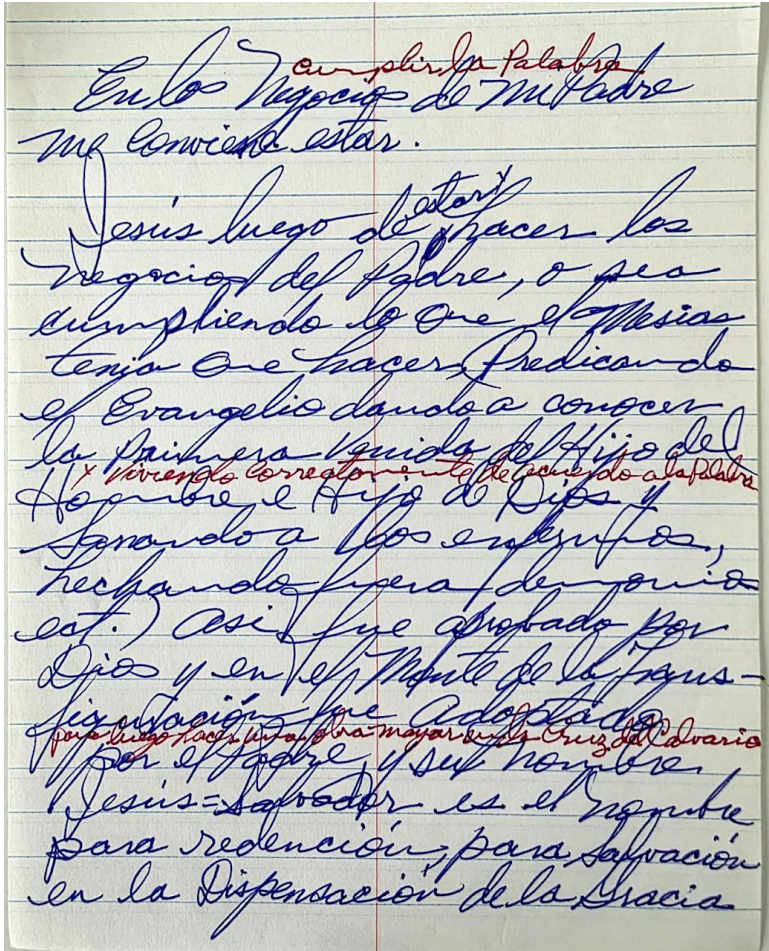 cumplir la Palabra
En los Negocios de Mi Padre
me conviene estar.
Jesús luego de estar y hacer los
negocios del Padre, o sea
cumpliendo lo que el Mesías
tenía que hacer, Predicando
el Evangelio dando a conocer
la primera Venida del Hijo del
y viviendo correctamente de acuerdo a la Palabra
Hombre e Hijo de Dios y
sanando a los enfermos,
hechando fuera demonios
ect.) Asi fue aprobado por
Dios y en el Monte de la Trans-
figuración fue Adoptado
para luego hacer una obra mayor en la Cruz del Calvario
por el Padre, y su nombre
Jesús = Salvador es el nombre
para redención, para Salvación
en la Dispensación de la Gracia